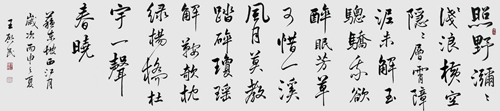 照野瀰〻
淺浪橫空
隱〻層霄障
泥未解玉
驄驕我欲
醉眠芳草
可惜一溪
風月莫教
踏碎瓊瑤
解鞍欹枕
綠楊橋杜
宇一聲
春曉
蘇東坡西江月
歲次丙申之夏
王